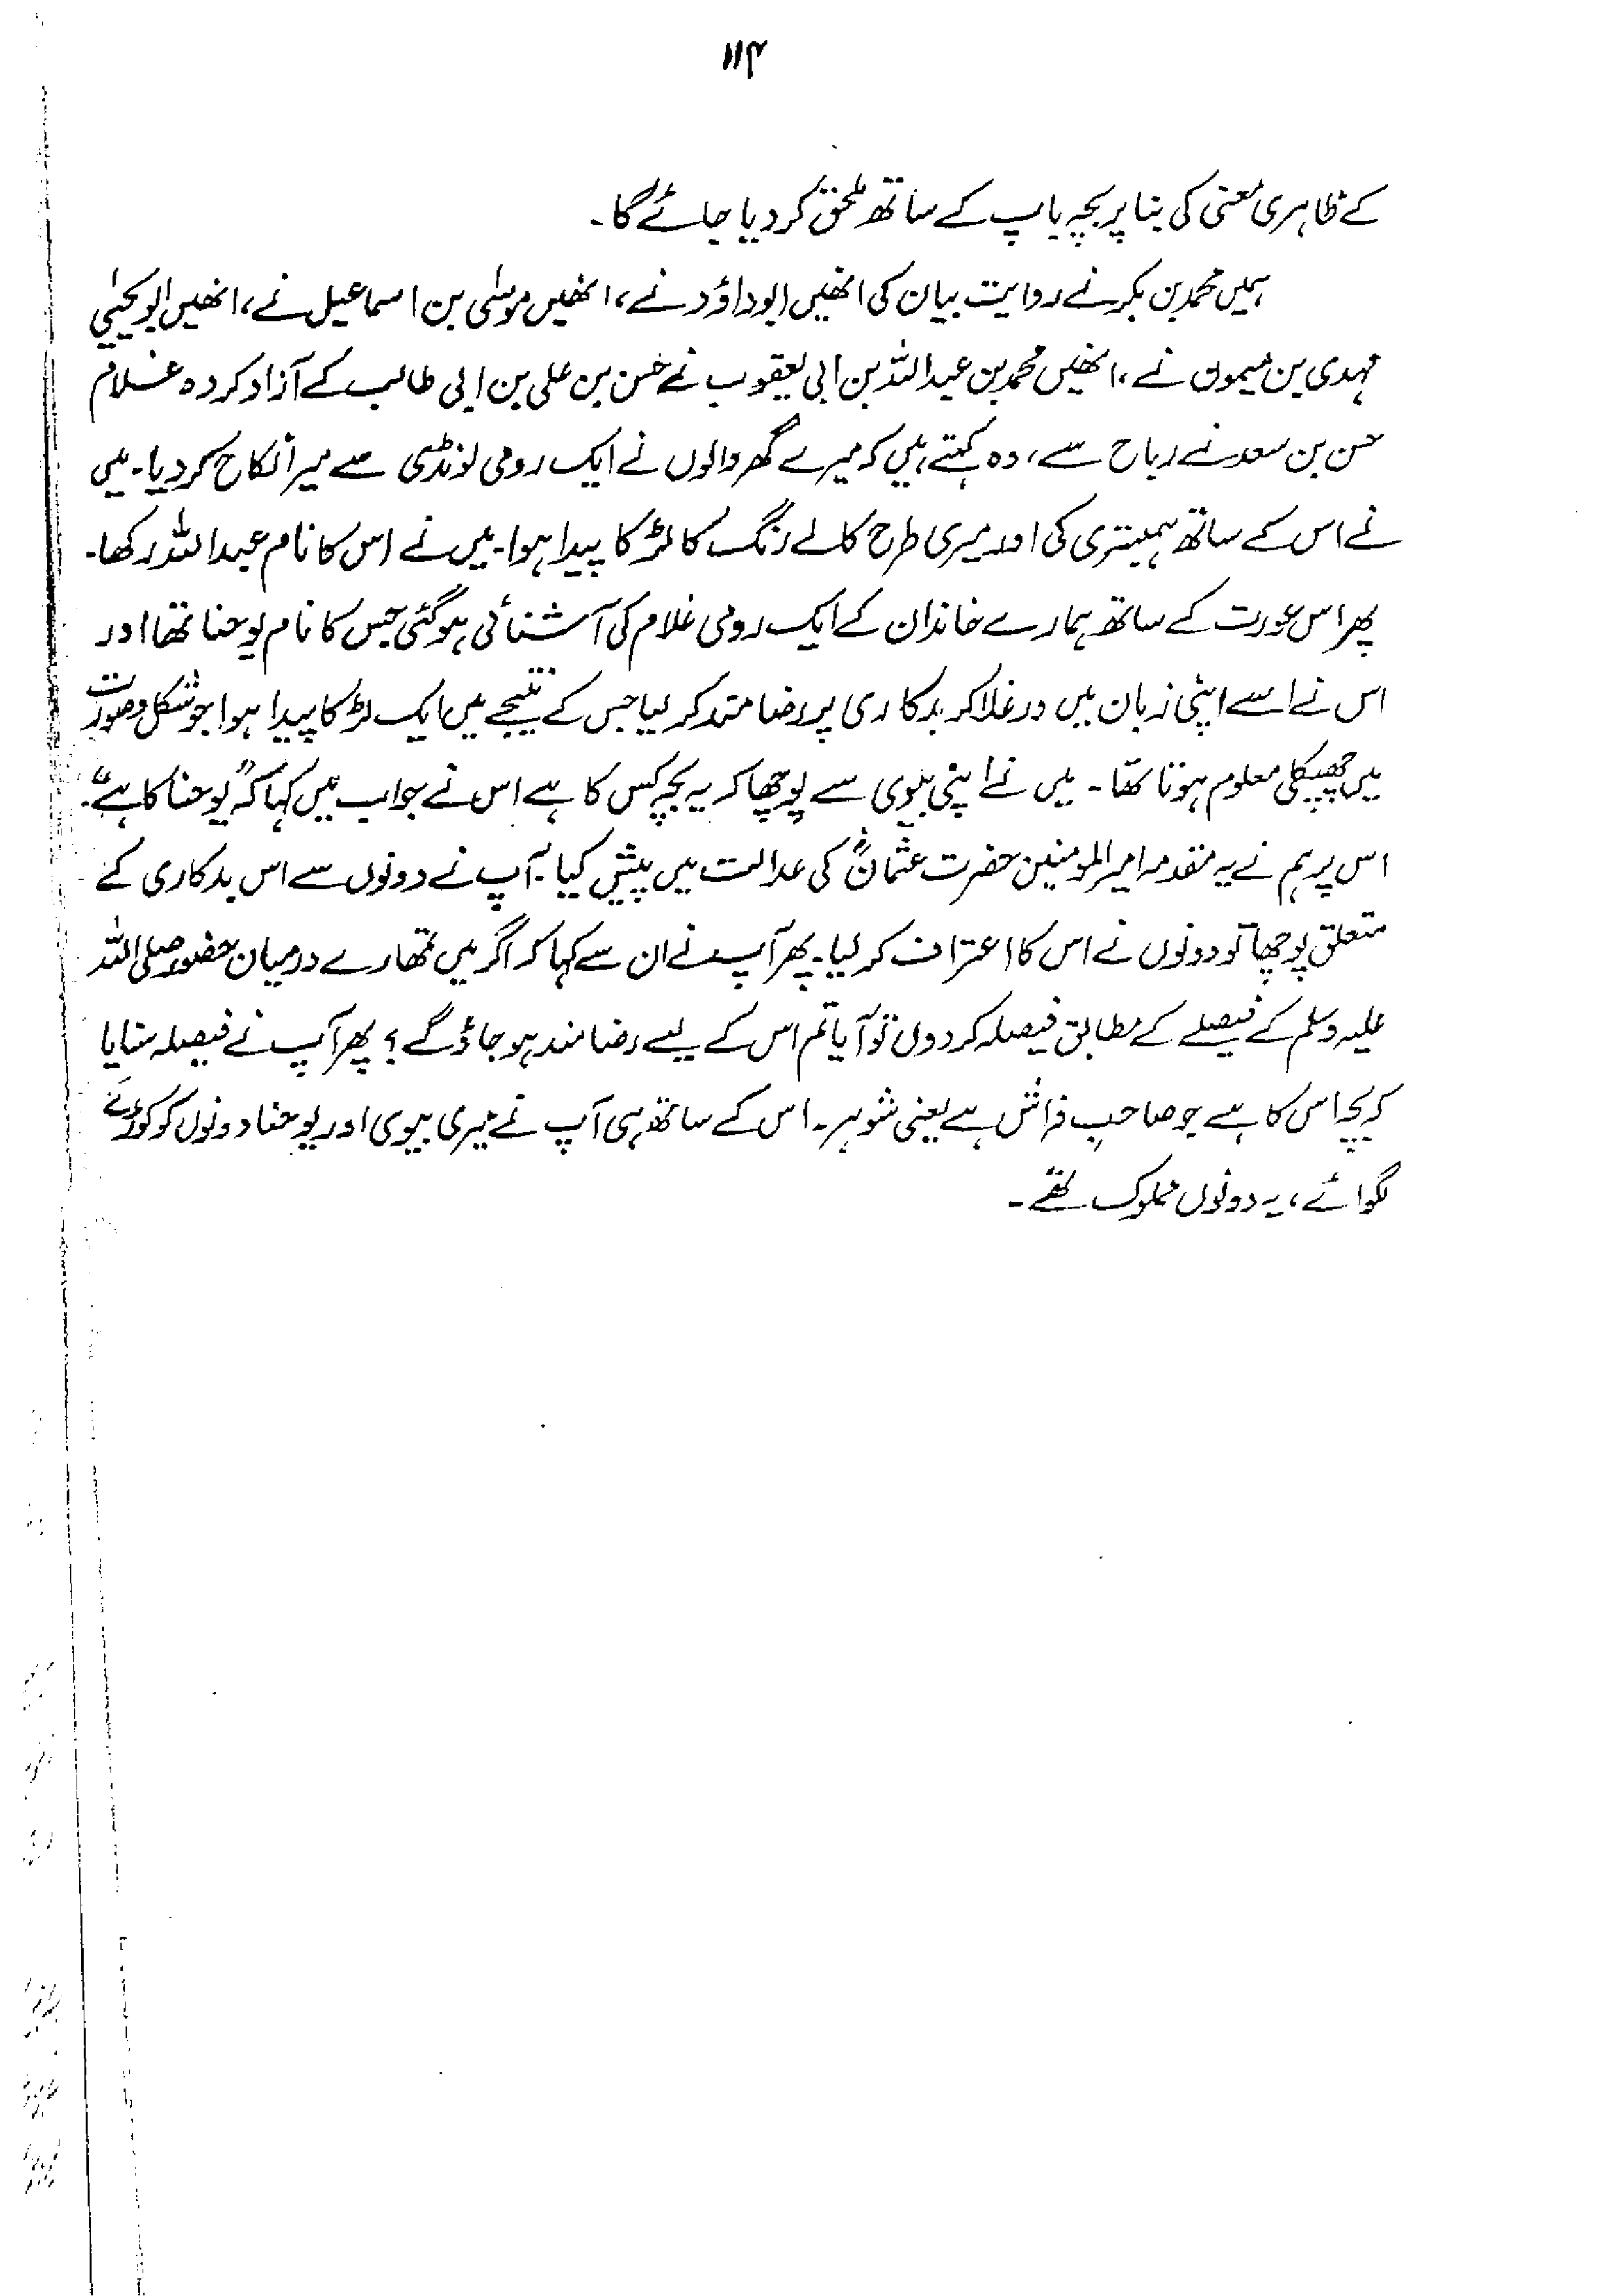 ۱۱۴
کے ظاہری معنی کی بنا پر بچہ باپ کے ساتھ ملحق کر دیا جائے گا۔
ہمیں محمد بن بکر نے روایت بیان کی انھیں ابوداؤد نے، انھیں موسیٰ بن اسماعیل نے، انھیں ابو یحییٰ
مہدی بن میمون نے، انھیں محمد بن عبداللہ بن ابی یعقوب نے حسن بن علی بن ابی طالب کے آزاد کردہ غلام
حسن بن سعد نے رباح سے، وہ کہتے ہیں کہ میرے گھر والوں نے ایک رومی لونڈی سے میرا نکاح کر دیا۔ میں
نے اس کے ساتھ ہمبستری کی اور میری طرح کالے رنگ کا لڑکا پیدا ہوا۔ میں نے اس کا نام عبداللہ رکھا۔
پھر اس عورت کے ساتھ ہمارے خاندان کے ایک رومی غلام کی آشنائی ہو گئی جس کا نام یوحنا تھا اور
اس نے اسے اپنی زبان میں ورغلا کر بدکاری پر رضامند کر لیا جس کے نتیجے میں ایک لڑکا پیدا ہوا جو شکل و صورت
میں چھپکلی معلوم ہوتا تھا۔ میں نے اپنی بیوی سے پوچھا کہ یہ بچہ کس کا ہے اس نے جواب میں کہا کہ "یوحنا کا ہے"۔
اس پر ہم نے یہ مقدمہ امیرالمومنین حضرت عثمانؓ کی عدالت میں پیش کیا۔ آپ نے دونوں سے اس بدکاری کے
متعلق پوچھا تو دونوں نے اس کا اعتراف کر لیا۔ پھر آپ نے ان سے کہا کہ اگر میں تمھارے درمیان حضور صلی اللہ
علیہ وسلم کے فیصلے کے مطابق فیصلہ کر دوں تو آیا تم اس کے لیے رضامند ہو جاؤ گے؟ پھر آپ نے فیصلہ سنایا
کہ بچہ اس کا ہے جو صاحبِ فراش ہے یعنی شوہر۔ اس کے ساتھ ہی آپ نے میری بیوی اور یوحنا دونوں کو کوڑے
لگوائے، یہ دونوں مملوک تھے۔